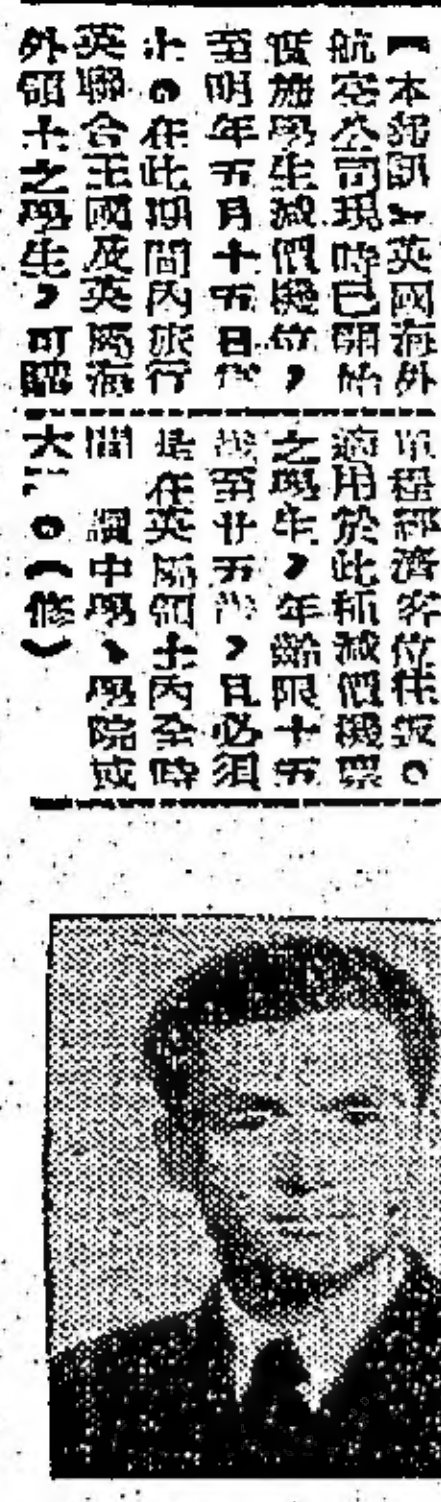 【本報訊】英國海外
航空公司現時已開始
實施學生減價機位，
至明年五月十五日為
止。在此期間內旅行
英聯合王國及英屬海
外領土之學生，可購
單程經濟客位往返。
適用於此種減價機票
之學生，年齡限十五
歲至廿五歲，且必須
是在英屬領土內全時
間讀中學、學院或
大。（修）